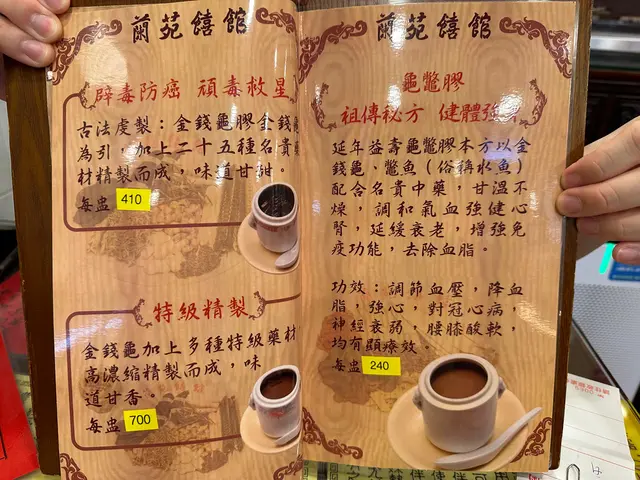 蘭苑饎館
辟毒防癌 頑毒救星
古法虔製：金錢龜膠金錢龜
為引，加上二十五種名貴藥
材精製而成，味道甘甜。
每盅 410
特級精製
金錢龜加上多種特級藥材
高濃縮精製而成，味
道甘香。
每盅 700
蘭苑饎館
龜鱉膠
祖傳秘方 健體強
延年益壽龜鱉膠本方以金
錢龜、鱉魚（俗稱水魚）
配合名貴中藥，甘溫不
燥，調和氣血強健心
腎，延緩衰老，增強免
疫功能，去除血脂。
功效：調節血壓，降血
脂，強心，對冠心病，
神經衰弱，腰膝酸軟，
均有顯療效。
每盅 240